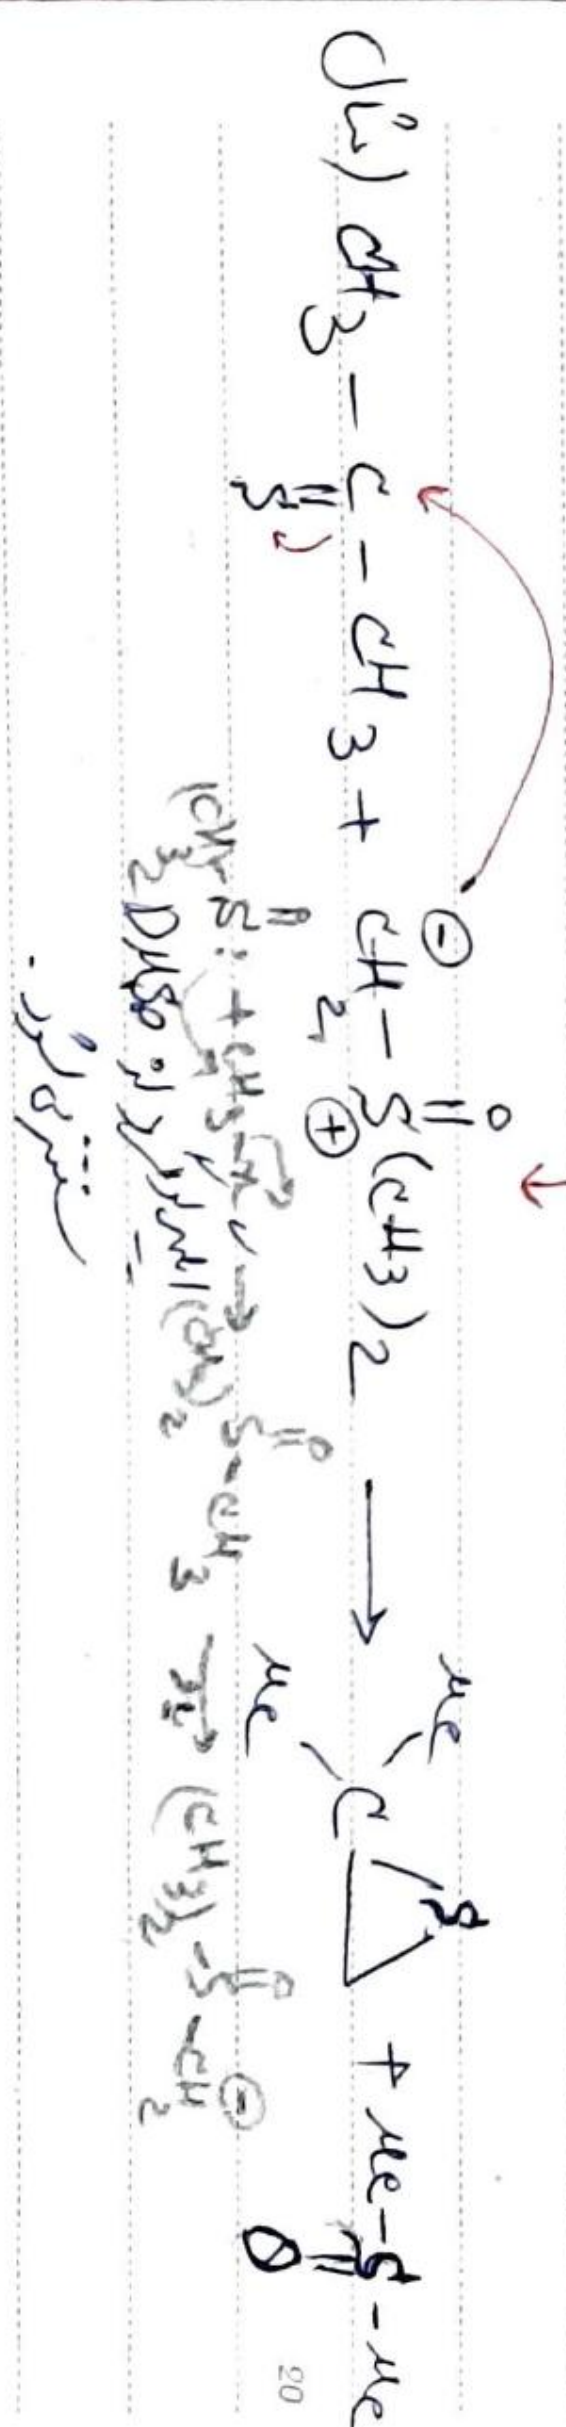 مثال) CH3 - C - CH3 + CH2 - S(CH3)2 → Me Me C S + Me - S - Me
S ⊖ ⊕ O O
(CH3)2 S: + CH3 - → (CH3)2 S - CH3 → (CH3)2 - S - CH2 ⊖
O O O
DMSO
20